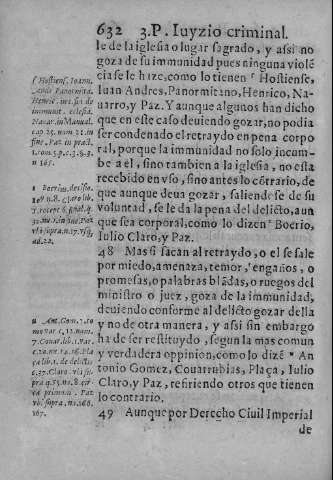 632 3.P. Iuyzio criminal.
le de la iglesia o lugar sagrado, y assi no
goza de su immunidad pues ninguna violē
cia se le hize, como lo tienen ſ Hostiense,
Iuan Andres, Panormitano, Henrico, Na-
uarro, y Paz. Y aunque algunos han dicho
que en este caso deuiendo gozar, no podia
ser condenado el retraydo en pena corpo
ral, porque la immunidad no solo incum-
be a el, sino tambien a la iglesia, no esta
recebido en vso, sino antes lo cōtrario, de
que aunque deua gozar, saliendose de su
voluntad, se le da la pena del delicto, aun
que sea corporal, como lo dizen t Boerio,
Iulio Claro, y Paz.
48 Mas si sacan al retraydo, o el se sale
por miedo, amenaza, temor, engaños, o
promesas, o palabras blādas, o ruegos del
ministro o juez, goza de la immunidad,
deuiendo conforme al delicto gozar della
y no de otra manera, y assi sin embargo
ha de ser restituydo, segun la mas comun
y verdadera oppinion, como lo dizē u An
tonio Gomez, Couarrubias, Plaça, Iulio
Claro, y Paz, refiriendo otros que tienen
lo contrario.
49 Aunque por Derecho Ciuil Imperial
de
ſ Hostiens. Ioann.
Andr. Panormita.
Henric. in c. sis de
immunit. eclesia.
Nauar. in Manual.
cap. 25. num. 21. in
fine. Paz in pract.
1. tom. 5. p. c. 3. §. 3.
n. 165.
t Boerius. decisio.
n. 8. Claro lib.
ad. 22.
u Ant. Gom. 3. to
mo var. c. 12. num.
7. Couar. lib. 2. var.
c. 20. nu. 14. Pla
ça lib. 1. de delictis
c. 37. Claro. vbi su
pra q. 30. nu. 8. cir
ca primum. Paz
vbi supra, nu. 166.
167.